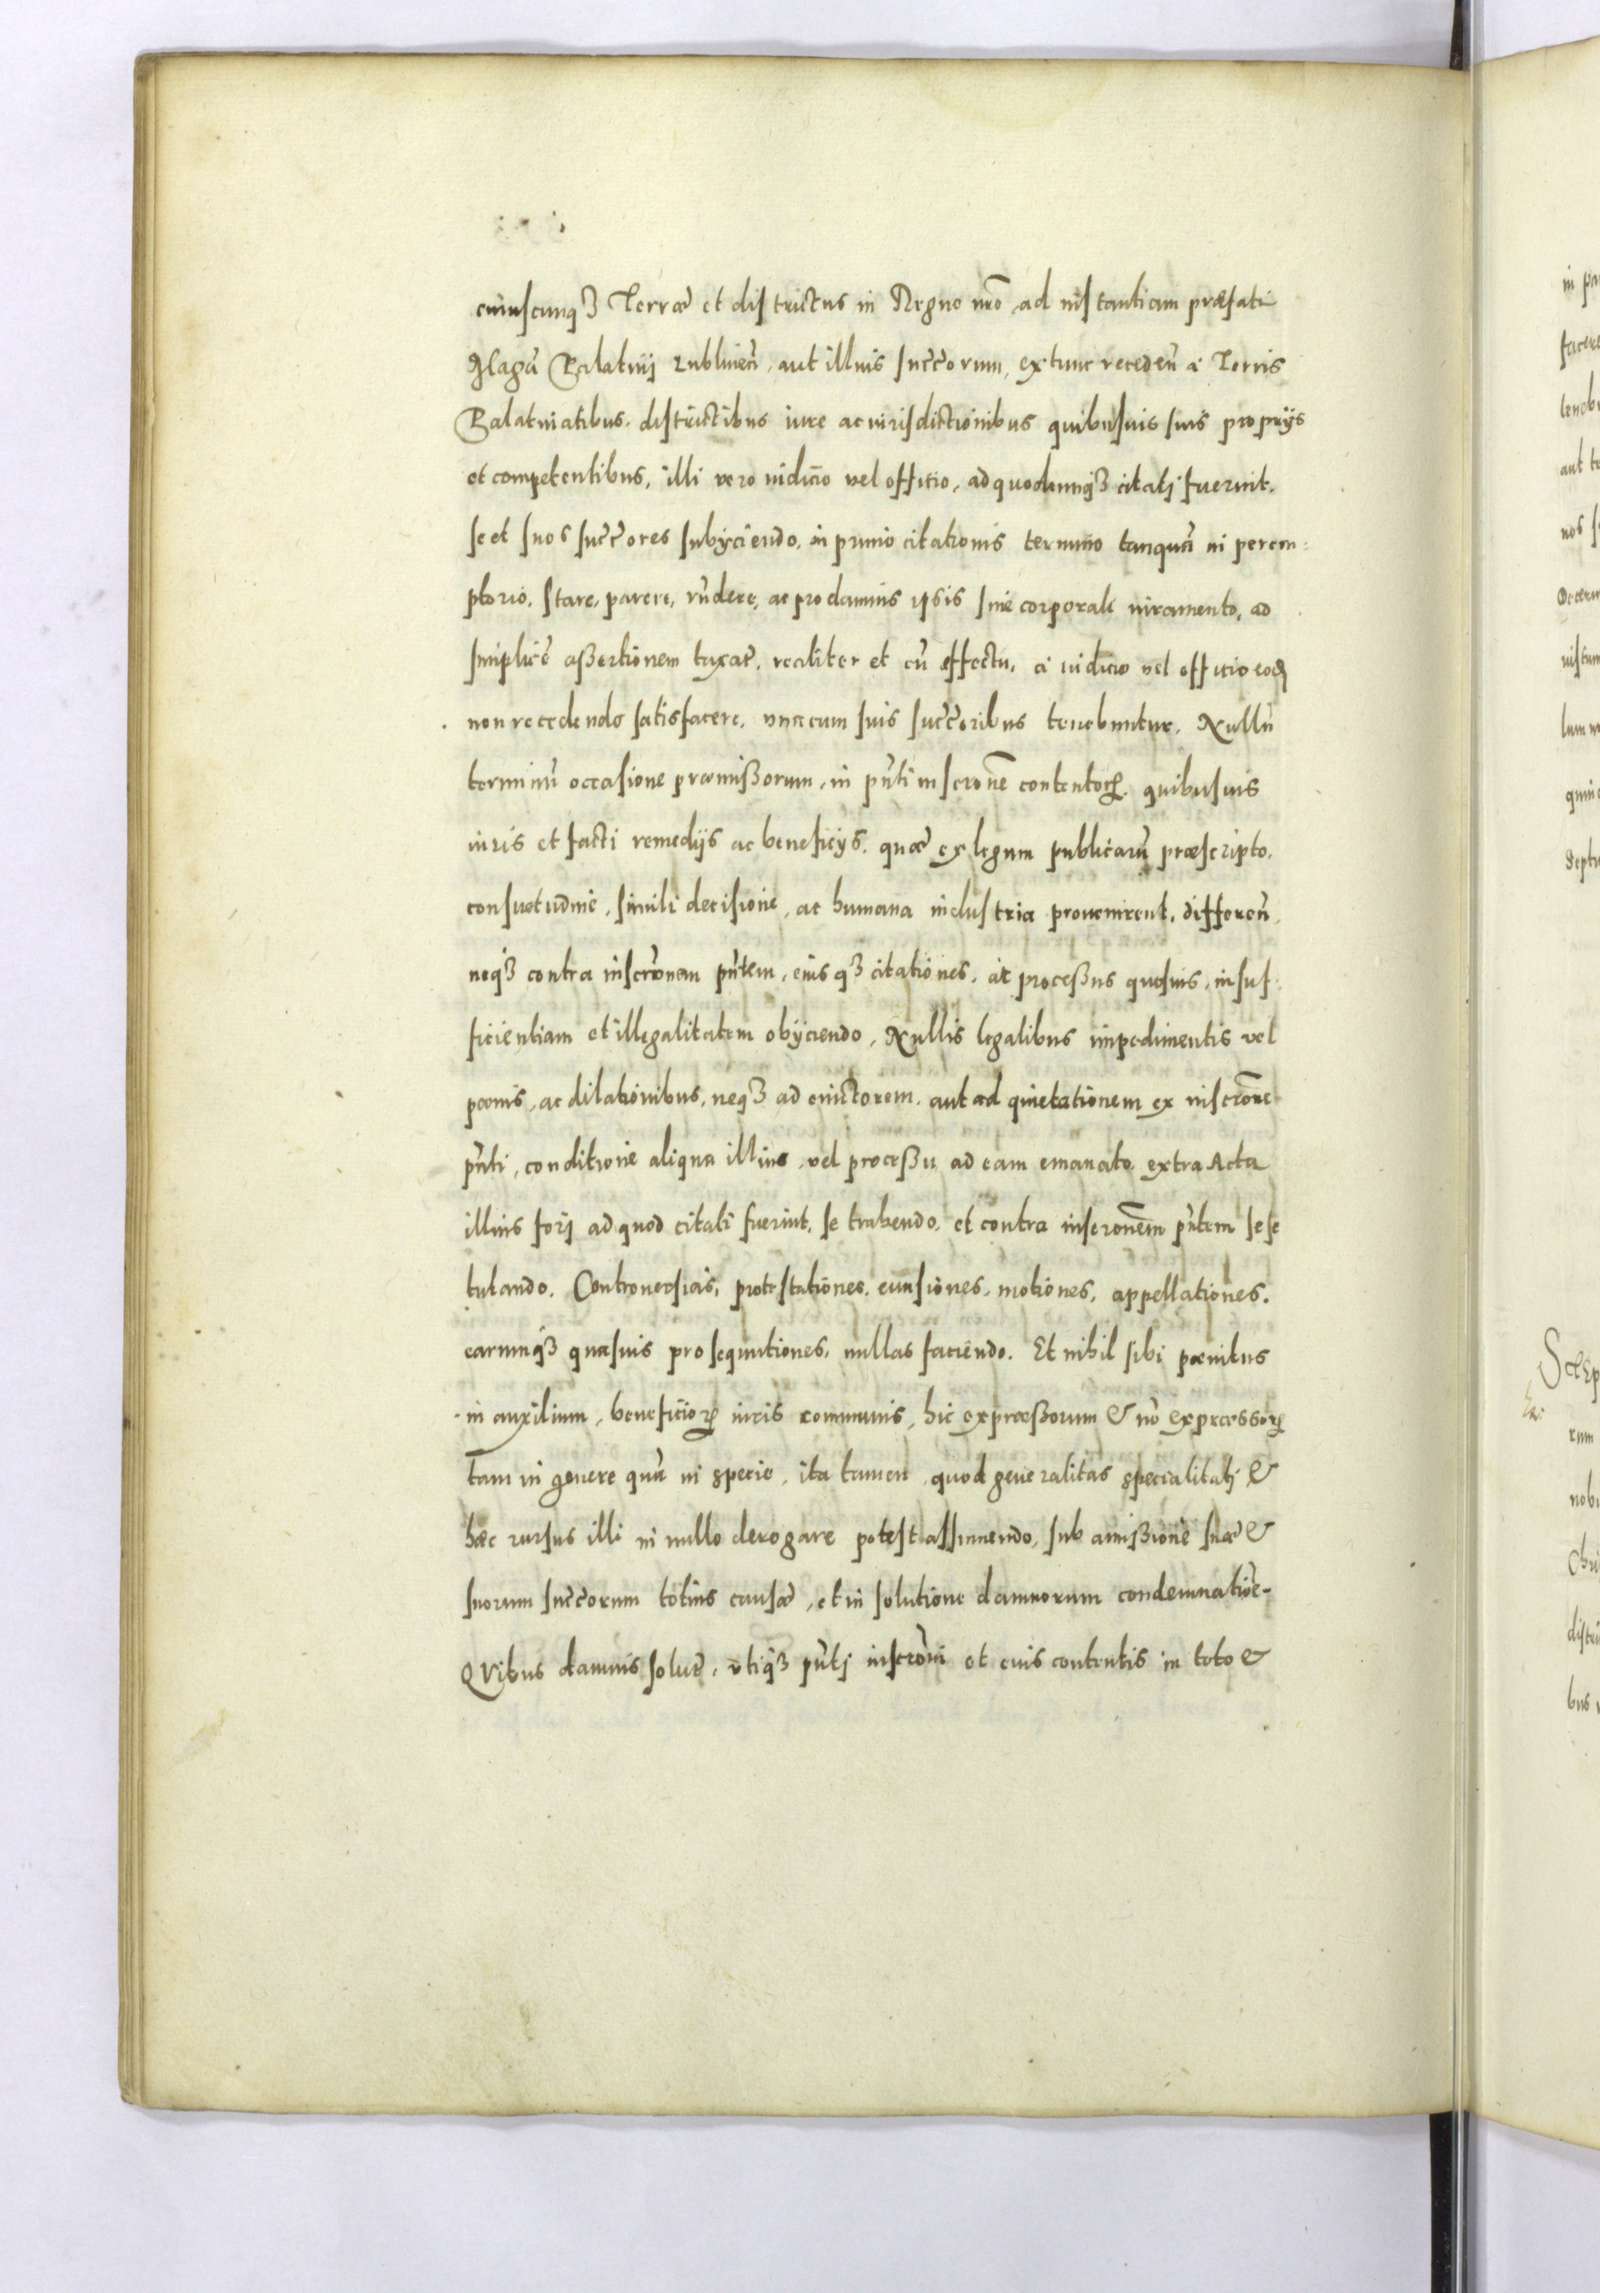 cuiuscunqȝ Terræ et districtus in Regno nr̃o ad instantiam præfati
Magcī Palatinj Lublinēn, aut illius succ̄orum, extunc recedeñ à Terris
Palatinatibus, districtibus iure ac iurisdictionibus quibusuis suis proprijs
et competentibus, illi vero iudicio vel officio, ad quodcunqȝ citatj fuerint,
se et suos succ̄ores subijciendo, in primo citationis termino tanquā in perem:
ptorio, stare, parere, rñdere, ac pro damnis ipsis sine corporali iuramento, ad
simplicē assertionem taxat̄, realiter et cū effectu, à iudicio vel officio eodē
non recedendo satisfacere, vna cum suis succ̄oribus tenebuntur. Nullū
terminū occasione præmissorum, in pñti inscr̄one contentorꝝ, quibusuis
iuris et facti remedijs ac beneficijs, quæ ex legum publicarū præscripto,
consuetudine, simili decisione, ac humana industria prouenirent, differeñ,
neqȝ contra inscr̄onem pñtem, eiusqȝ citationes, at processus quosuis, insuf:
ficientiam et illegalitatem obijciendo, Nullis legalibus impedimentis vel
pœnis, ac dilationibus, neqȝ ad euictorem, aut ad quietationem ex inscr̄one
pñti, conditione aliqua illius, vel processu ad eam emanato, extra Acta
illius forj ad quod citati fuerint, se trahendo, et contra inscr̄onem pñtem sese
tutando. Controuersias, protestationes, euasiones, motiones, appellationes,
earumqȝ quasuis prosequutiones, nullas faciendo. Et nihil sibi pænitus
in auxilium, beneficiorꝝ iuris communis, hic expræssorum & nō expræssorꝝ
tam in genere quā in specie, ita tamen quod generalitas specialitatj &
hæc rursus illi in nullo derogare potest assumendo, sub amissione suæ &
suorum succ̄orum totius causæ, et in solutione damnorum condemnatiōe.
QVibus damnis solut̄, vtiqȝ pñtj inscr̄oni et eius contentis in toto &